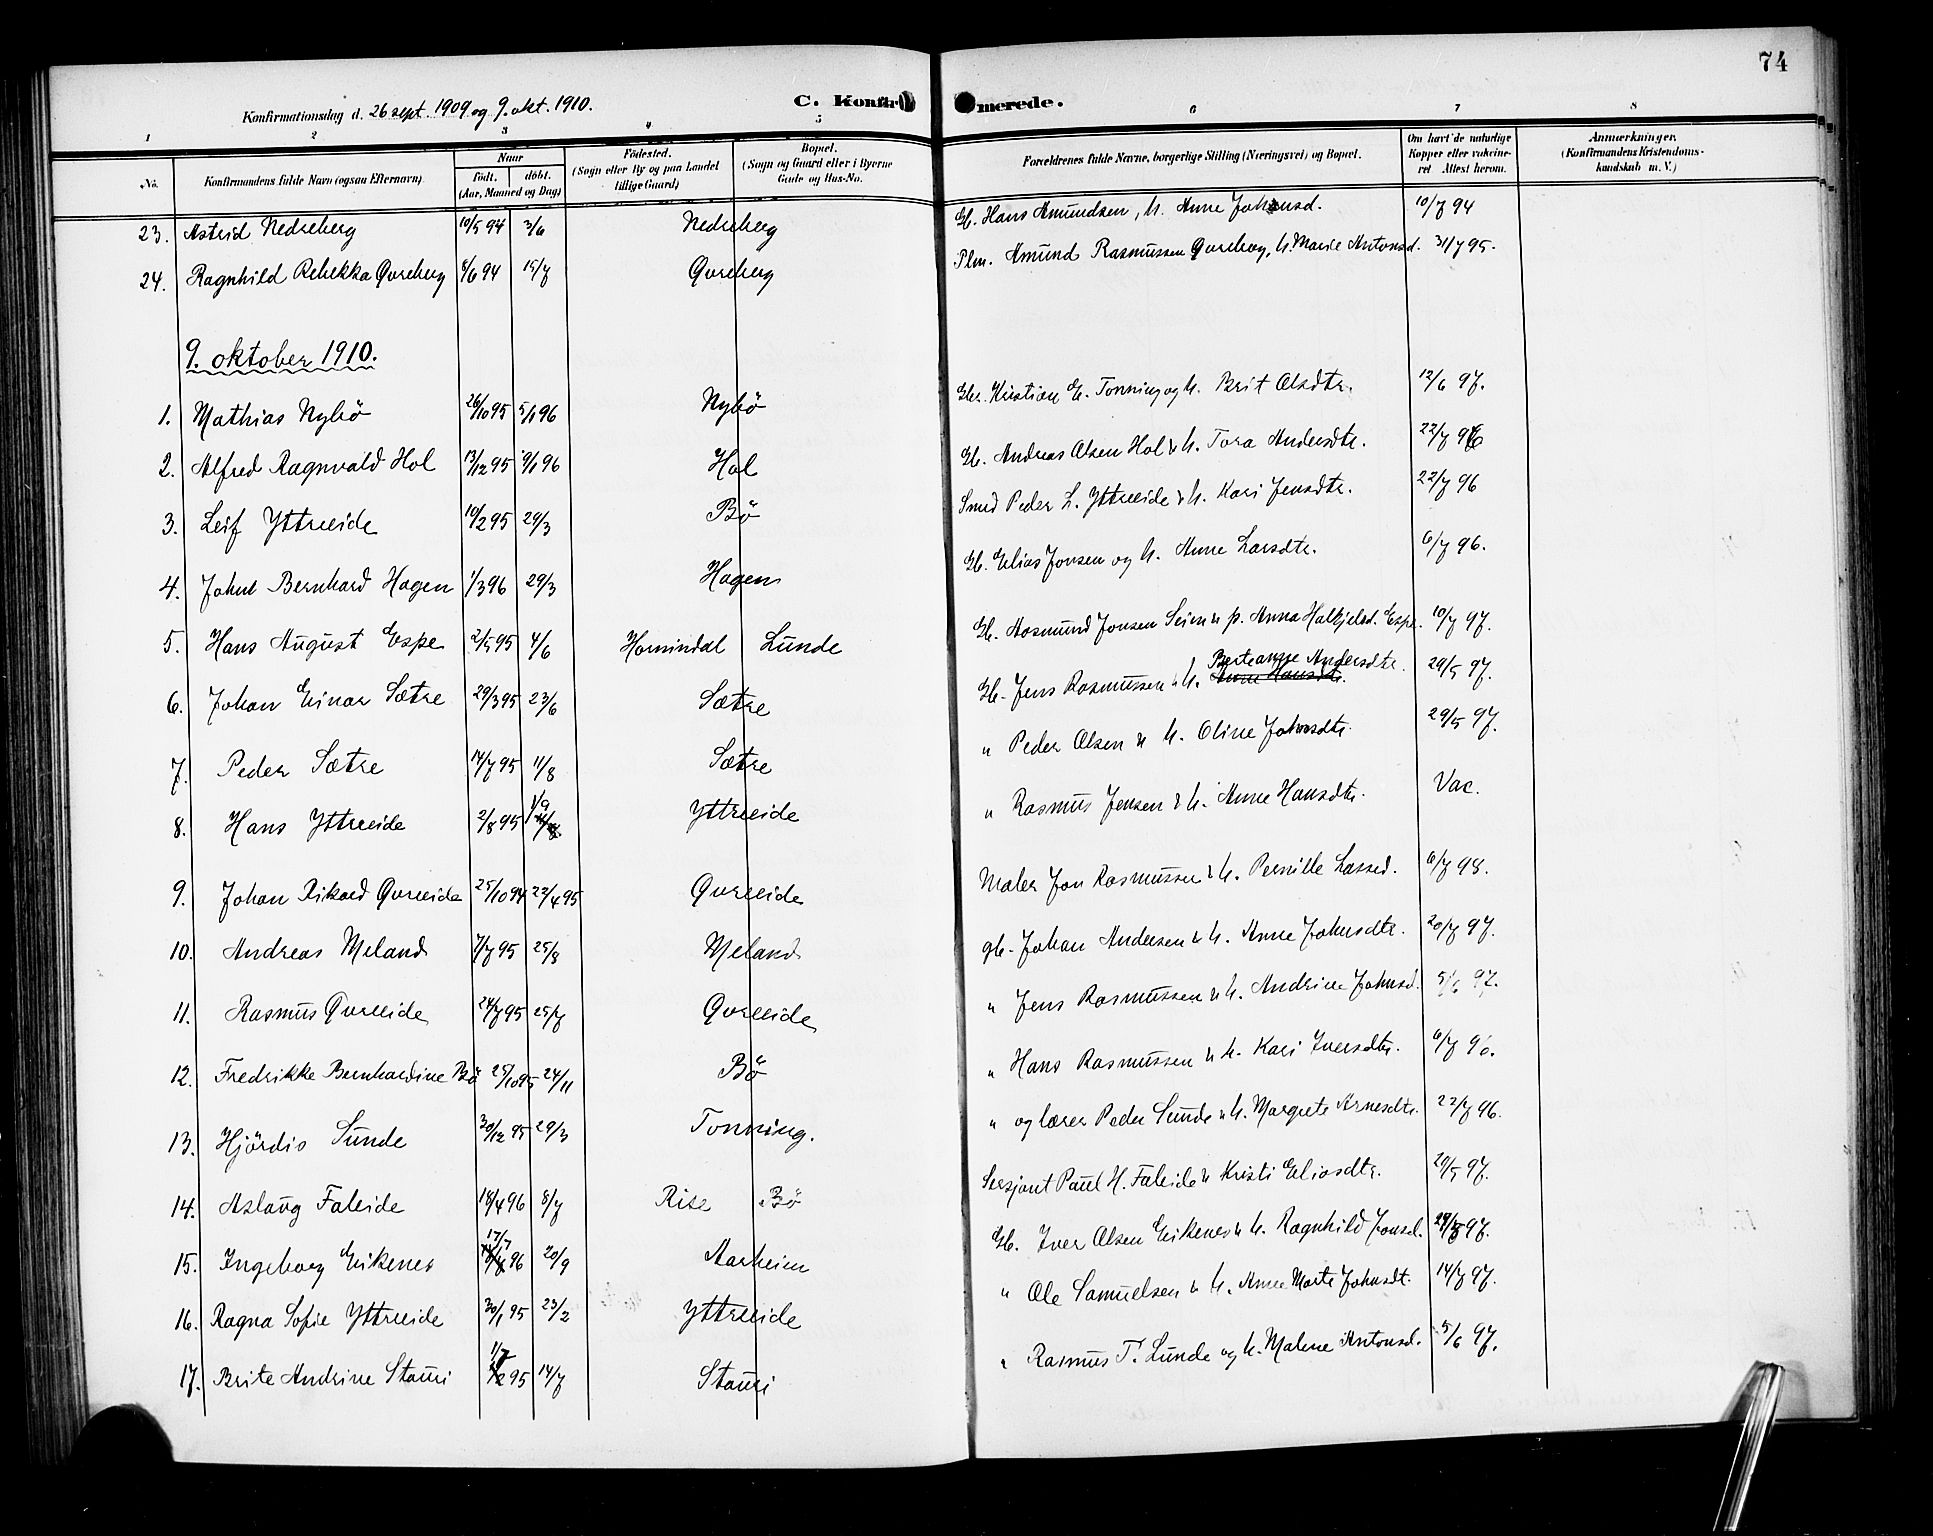 74
Konfirmationsdag d. 26 sept. 1909 og 9. okt. 1910. C. Konfirmerede.
1 2 3 4 5 6 7 8
No. Konfirmandens fulde Navn (ogsaa Efternavn) Naar født. døbt. (Aar, Maaned og Dag) Fødested. (Sogn eller By og paa Landet tillige Gaard) Bopæl. (Sogn og Gaard eller i Byerne Gade og Hus-No. Forældrenes fulde Navne, borgerlige Stilling (Næringsvei) og Bopæl. Om havt de naturlige Kopper eller vakcineret. Attest herom. Anmærkninger. (Konfirmandens Kristendomskundskab m. V.)
23. Astrid Nedreberg 10/5 94 3/6 Nedreberg Gb. Hans Amundsen, h. Anne Johnsd. 10/7 94
24. Ragnhild Rebekka Qvreberg 8/6 94 15/7 Qvreberg Plm. Amund Rasmussen Qvreberg, h. Marie Antonsd. 31/7 95.
9. oktober 1910.
1. Mathias Nybö 26/10 95 5/1 96 Nybö Gbr. Kristian E. Tonning og h. Brit Olsdtr. 12/6 97.
2. Alfred Ragnvald Hol 13/12 95 9/1 96 Hol Gb. Andreas Olsen Hol & h. Tora Andersdtr. 22/7 96
3. Leif Yttreeide 10/2 95 29/3 Bö Smed Peder L. Yttreeide & h. Kari Jensdtr. 22/7 96
4. Johnl Bernhard Hagen 1/3 96 29/3 Hagen Gb. Elias Jonsen og h. Anne Larsdtr. 6/7 96.
5. Hans August Espe 2/5 95 4/6 Hornindal Lunde Gb. Aasmund Jonsen Seim & p. Anna Halkjelsd. Espe. 10/7 97.
6. Johan Einar Sætre 29/3 95 23/6 Sætre Gb. Jens Rasmussen & h. Berteanne Andersdtr. Anne Hansdtr. 29/5 97.
7. Peder Sætre 14/7 95 11/8 Sætre " Peder Olsen & h. Oline Johnsdtr. 29/5 97.
8. Hans Yttreeide 2/8 95 1/9 Yttreeide " Rasmus Jensen & h. Anne Hansdtr. Vac.
9. Johan Rikard Qvreeide 25/10 94 22/4 95 Qvreeide Maler Jon Rasmussen & h. Pernille Lassed. 6/7 98.
10. Andreas Meland 7/7 95 25/8 Meland gb. Johan Andersen & h. Anne Johnsdtr. 20/7 97.
11. Rasmus Qvreeide 24/7 95 25/7 Qvreeide " Jens Rasmussen & h. Andrine Johnsd. 5/6 97.
12. Fredrikke Bernhardine Bö 25/10 95 24/11 Bö " Hans Rasmussen & h. Kari Iversdtr. 6/7
13. Hjördis Sunde 30/12 95 29/3 Tonning. " og lærer Peder Sunde & h. Margrete Arnesdtr. 22/7 96.
14. Aslaug Faleide 18/4 96 8/7 Rise Bö Sersjant Paul H. Faleide & Kristi Eliasdtr. 20/5 97.
15. Ingeborg Eikenes 17/7 96 20/9 Aarheim Gb. Iver Olsen Eikenes & h. Ragnhild Jonsd. 97.
16. Ragna Sofie Yttreeide 30/1 95 23/2 Yttreeide " Ole Samuelsen & h. Anne Marte Johnsdt. 14/7 97.
17. Brite Andrine Stauri 1/7 95 14/7 Stauri " Rasmus T. Lunde og h. Malene Antonsd. 5/6 97.